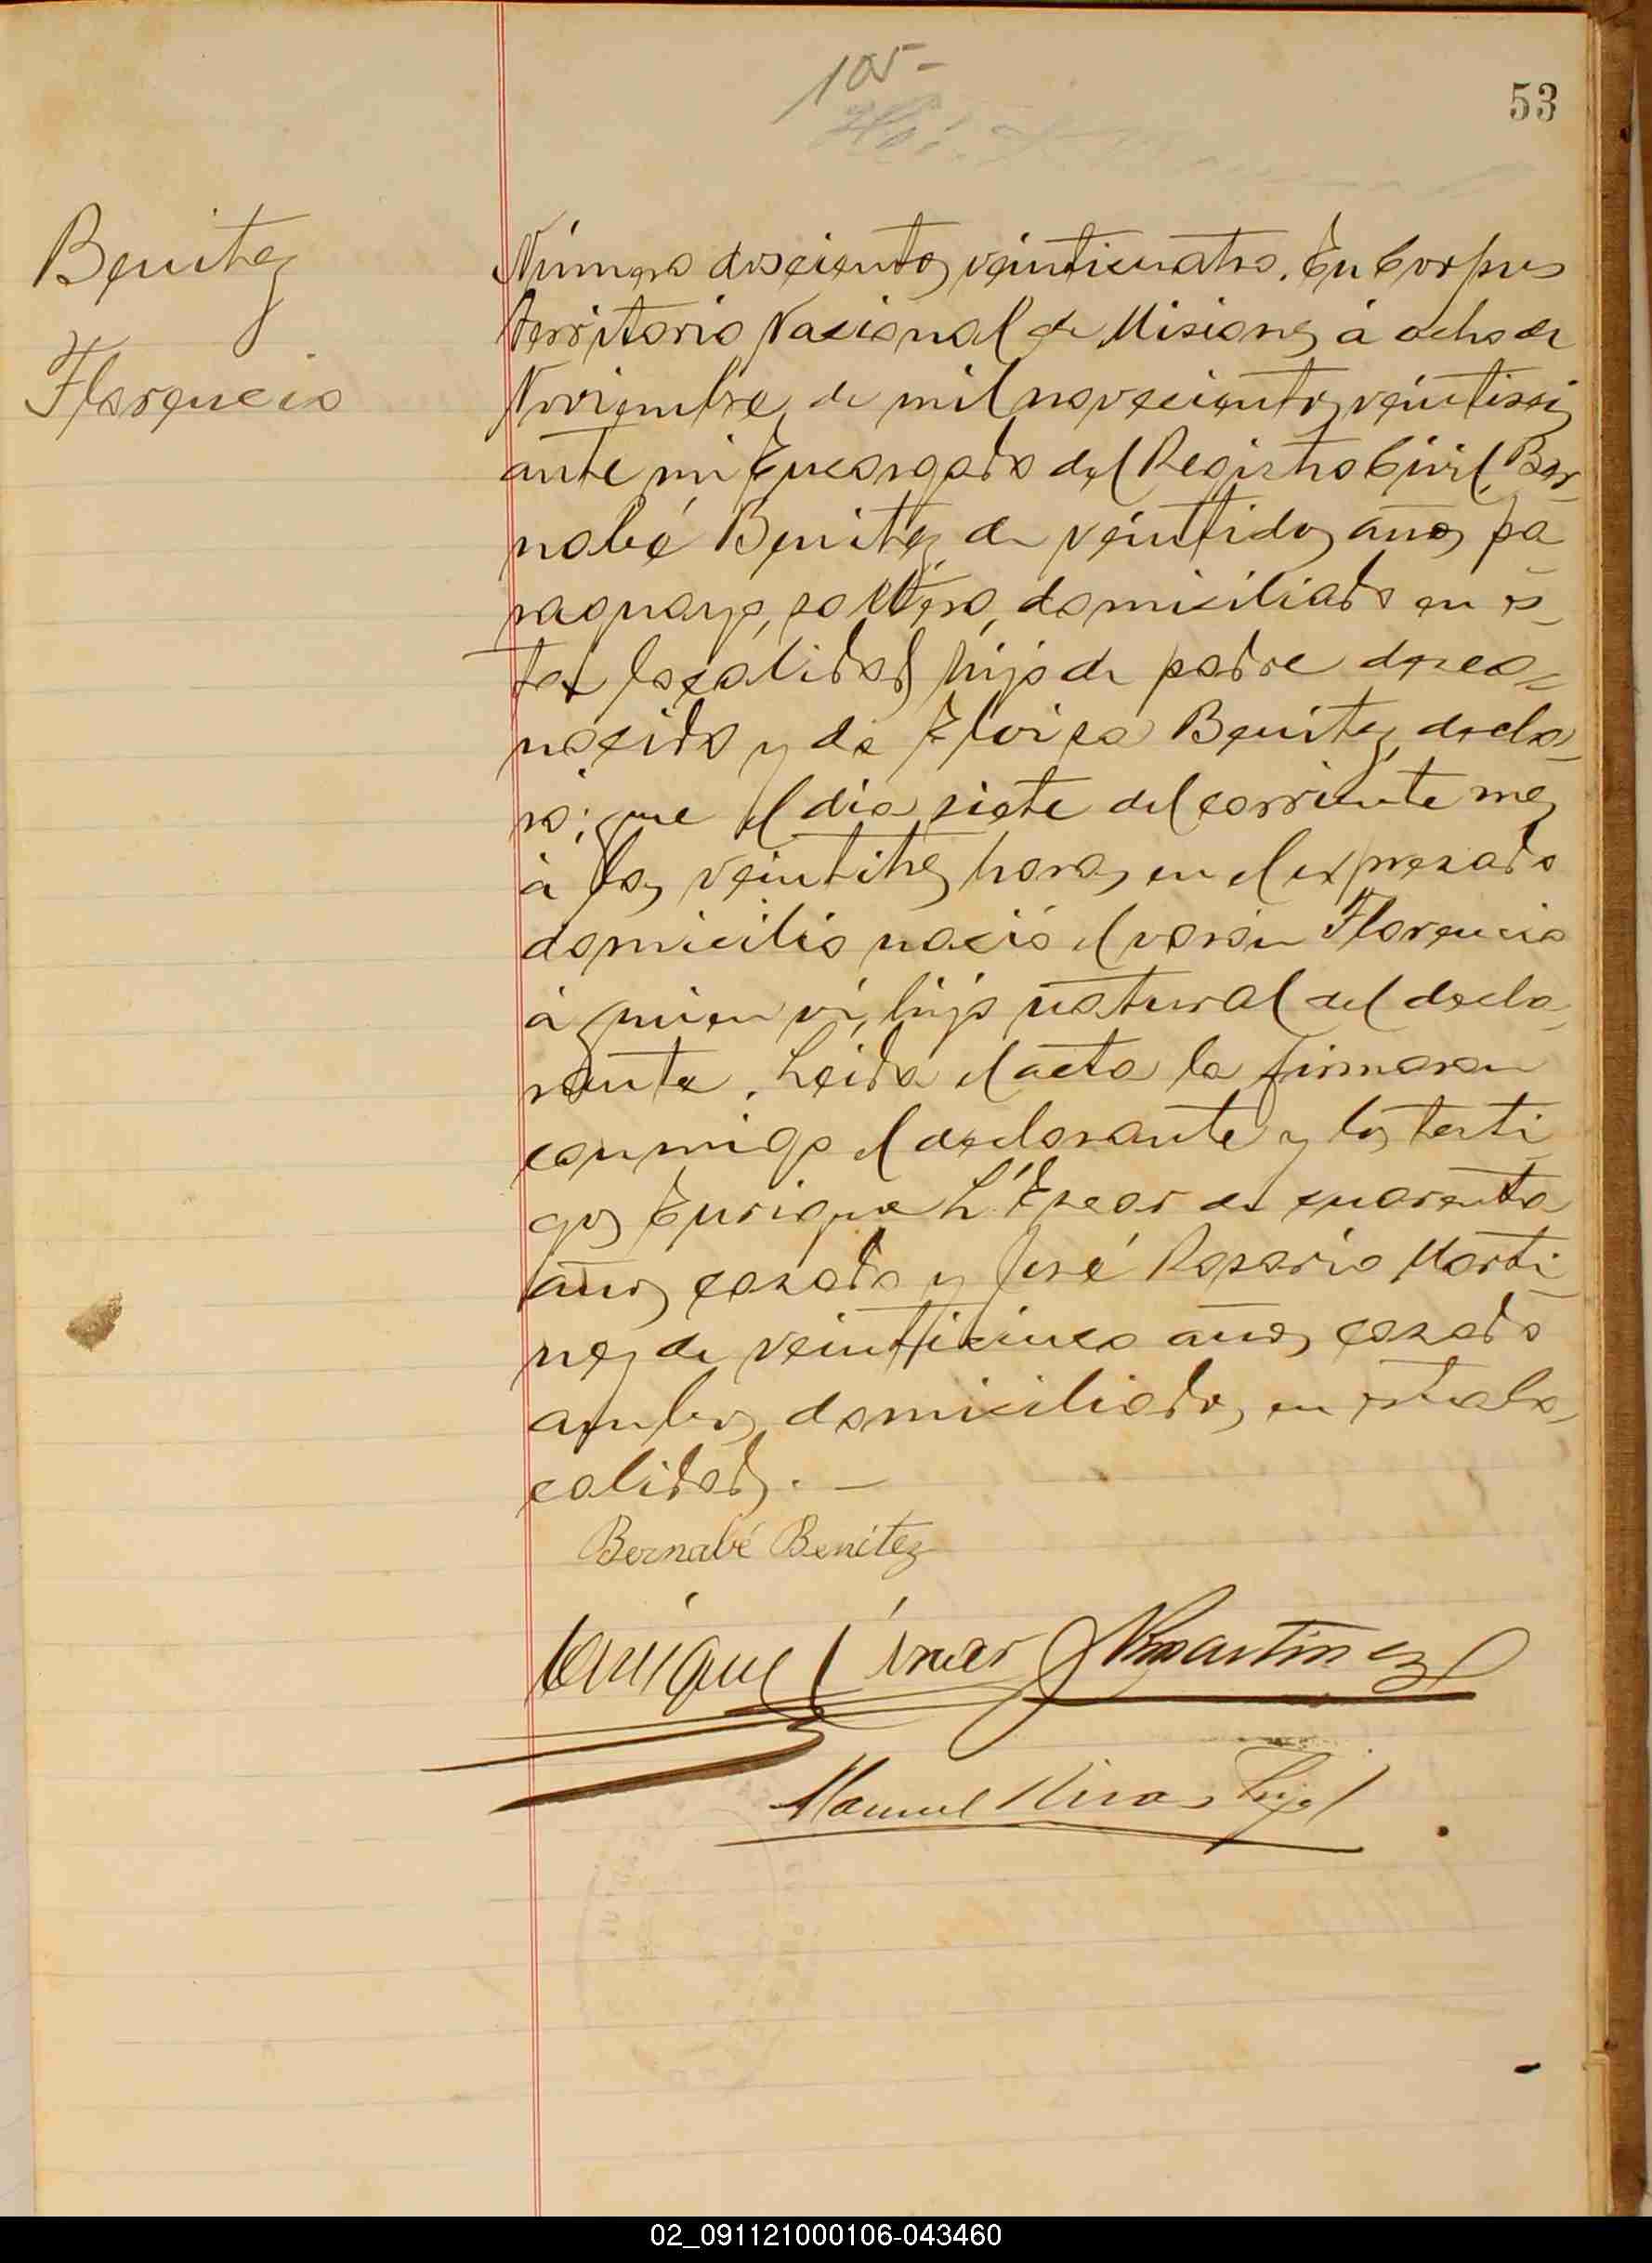 105-
53
Benitez
Florencio
Número doscientos veinticuatro. En Corpus
territorio Nacional de Misiones á ocho de
Noviembre de mil novecientos veintiseis
ante mi Encargado del Registro Civil, Ber-
nabé Benitez de veintidos años, pa
raguayo, soltero, domiciliado en es-
ta localidad hijo de padre desco-
nocido y de Eloisa Benitez, decla-
ró; que el dia siete del corriente mes
á las veintitres horas, en el expresado
domicilio nació el varón Florencio
á quien vi, hijo natural del decla-
rante. Leida el acta la firmaron
conmigo el declarante y los testi
gos Enrique L'Escar de cuarenta
años casado y José Rosario Marti-
nez de veinticinco años casado
ambos domiciliados en esta lo-
calidad. —
Bernabé Benítez
Enrique L' Escar J R Martinez
Manuel
02_091121000106-043460